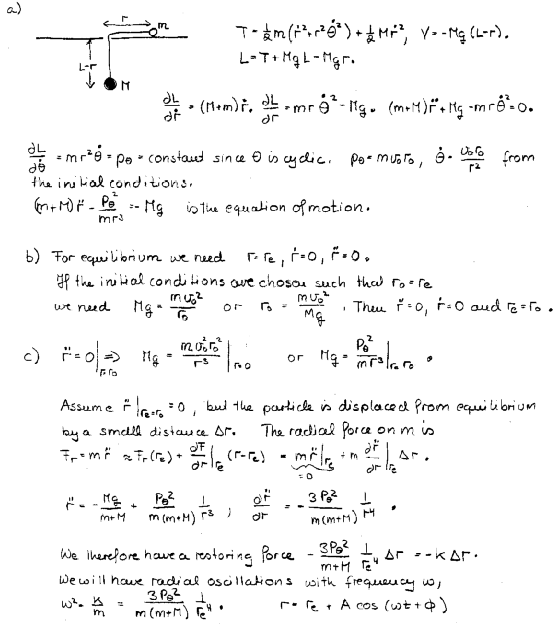 a)
r m
L-r
M
T = ½m(ṙ² + r²θ̇²) + ½Mṙ², V = -Mg(L-r).
L = T + MgL - Mgr.
∂L/∂ṙ = (M+m)ṙ. ∂L/∂r = mrθ̇² - Mg. (m+M)r̈ + Mg - mrθ̇² = 0.
∂L/∂θ̇ = mr²θ̇ = pθ = constant since θ is cyclic. pθ = mv₀r₀, θ̇ = v₀r₀/r² from
the initial conditions.
(m+M)r̈ - pθ²/mr³ = -Mg is the equation of motion.
b) For equilibrium we need r = rₑ, ṙ = 0, r̈ = 0.
If the initial conditions are chosen such that r₀ = rₑ
we need Mg = mv₀²/r₀ or r₀ = mv₀²/Mg. Then r̈ = 0, ṙ = 0 and rₑ = r₀.
c) r̈ = 0|r=r₀ ⇒ Mg = mv₀²r₀²/r³|r=0 or Mg = pθ²/mr³|rₑ=r₀.
Assume r̈|rₑ=r₀ = 0, but the particle is displaced from equilibrium
by a small distance Δr. The radial force on m is
Fᵣ = mr̈ ≈ Fᵣ(rₑ) + ∂F/∂r|rₑ (r-rₑ) = mr̈|rₑ + m ∂r̈/∂r|rₑ Δr.
=0
r̈ = -Mg/(m+M) + pθ²/m(m+M) 1/r³ ; ∂r̈/∂r = -3pθ²/m(m+M) 1/r⁴.
We therefore have a restoring force -3pθ²/(m+M) 1/rₑ⁴ Δr = -kΔr.
We will have radial oscillations with frequency ω,
ω² = k/m = 3pθ²/m(m+M) 1/rₑ⁴. r = rₑ + A cos(ωt+φ)